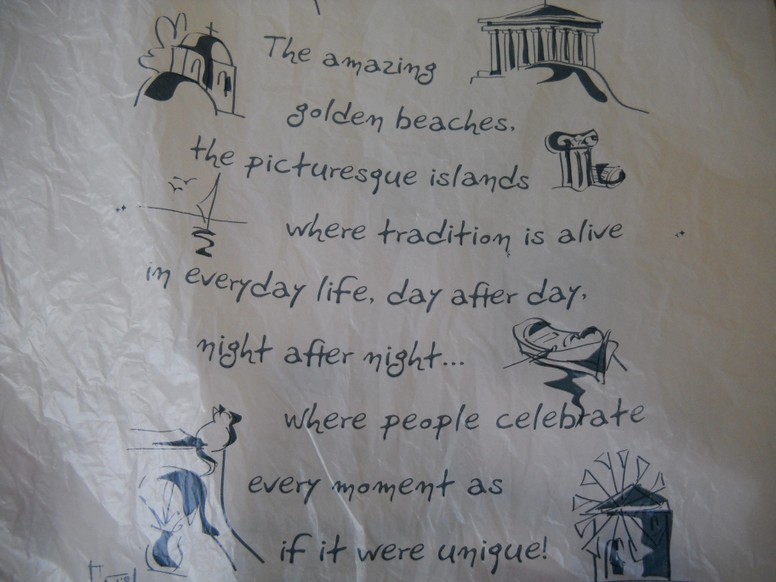 The amazing
golden beaches,
the picturesque islands
where tradition is alive
in everyday life, day after day,
night after night...
where people celebrate
every moment as
if it were unique!